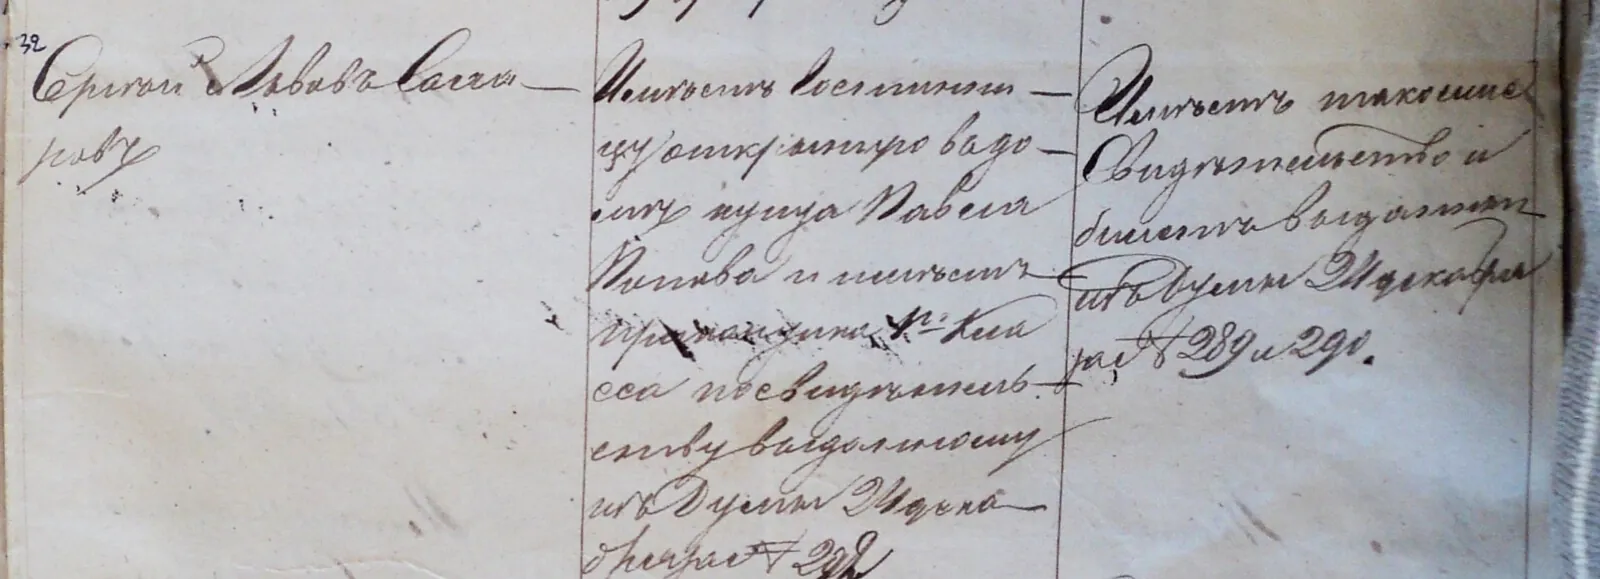 32
Сергей Львовъ Сама-
ровъ
Имѣетъ гостинни-
цу открытую въ до-
мѣ купца Павела
Попова и имѣетъ
прикащика 1го Кла
сса по свидѣтель-
ству выданному
изъ Думы 21 дека-
бря за №
Имѣетъ таковые
Свидѣтельство и
билетъ выданные
изъ Думы 21 декабря
за № 289 и 290.